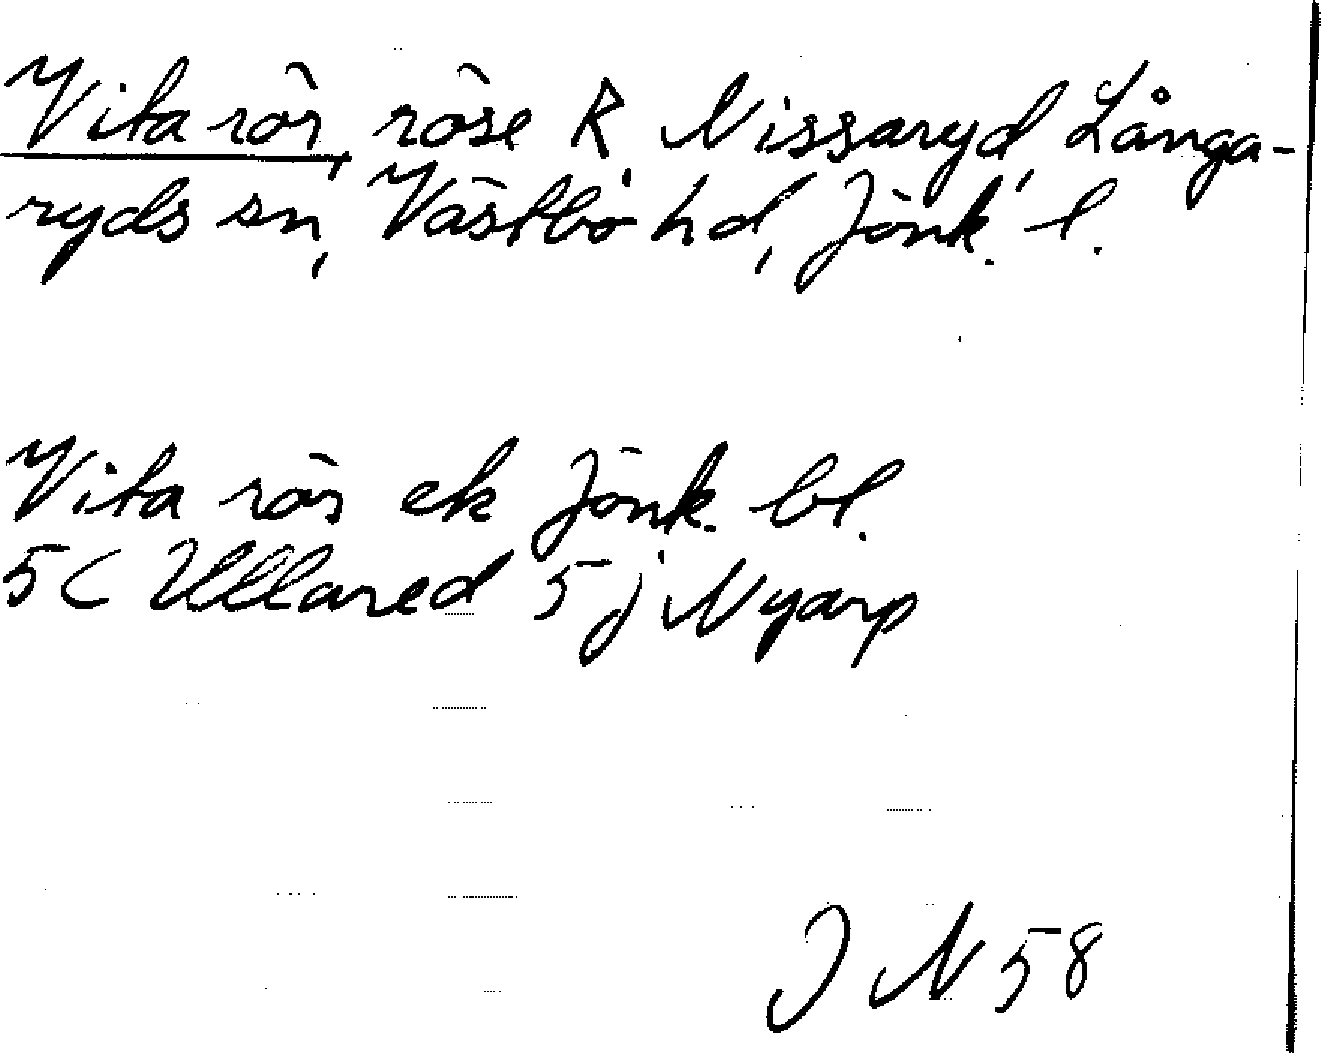 Vita rör, röse R, Nissaryd, Långa-
ryds sn, Västbo hd, Jönk. l.
Vita rör ek Jönk. bl.
5C Ullared 5j Nyarp
J N 58